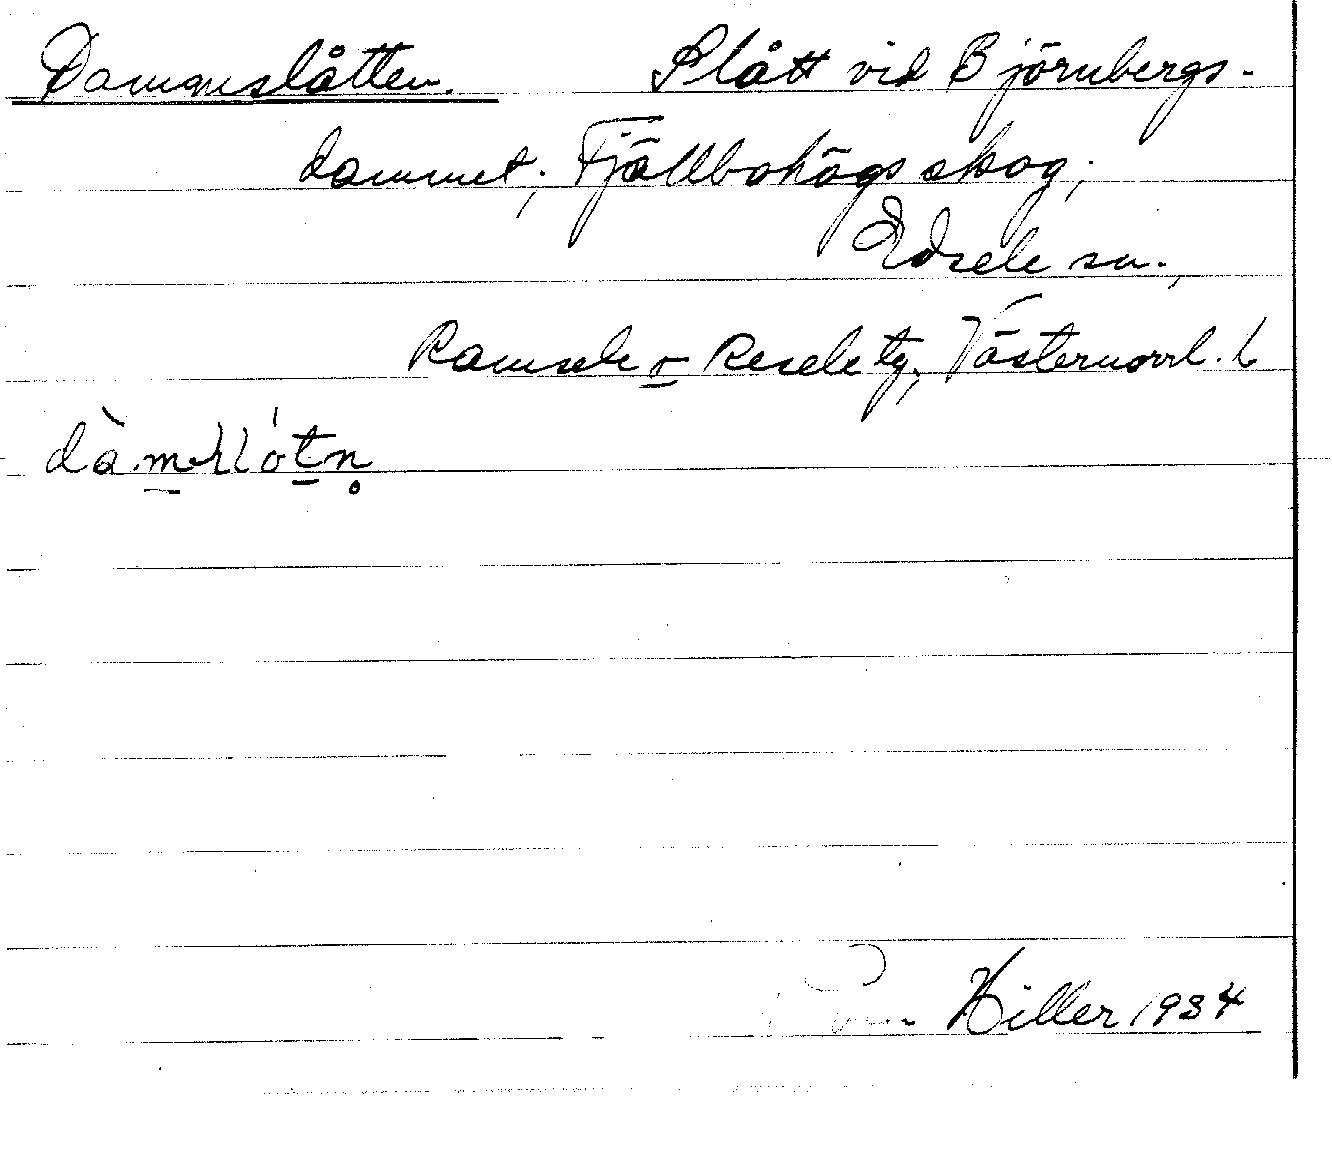 Dammslåtten. Slått vid Björnbergs-
dammet; Fjällbohögs skog;
Edsele sn.,
Ramsele o Resele tg; Västernorrl. l
Hiller 1934